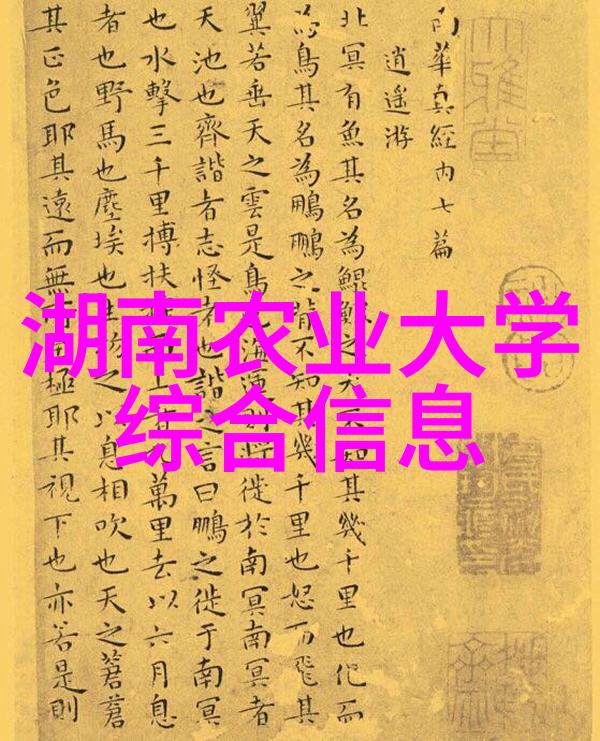 湖南农业大学
综合信息
南華真經内七篇
逍遥游
北冥有魚其名為鯤鯤之大不知其幾千里也化而
為鳥其名為鵬鵬之背不知其幾千里也怒而飛其
翼若垂天之雲是鳥也海運則將徙於南冥南冥者
天池也齊諧者志怪者也諧之言曰鵬之徙于南冥
也水擊三千里搏扶上者萬里去以六月息
者也野馬也塵埃也生物之以息相吹也天之蒼蒼
其正色耶其遠而無極耶其視下也亦若是則
大雅堂